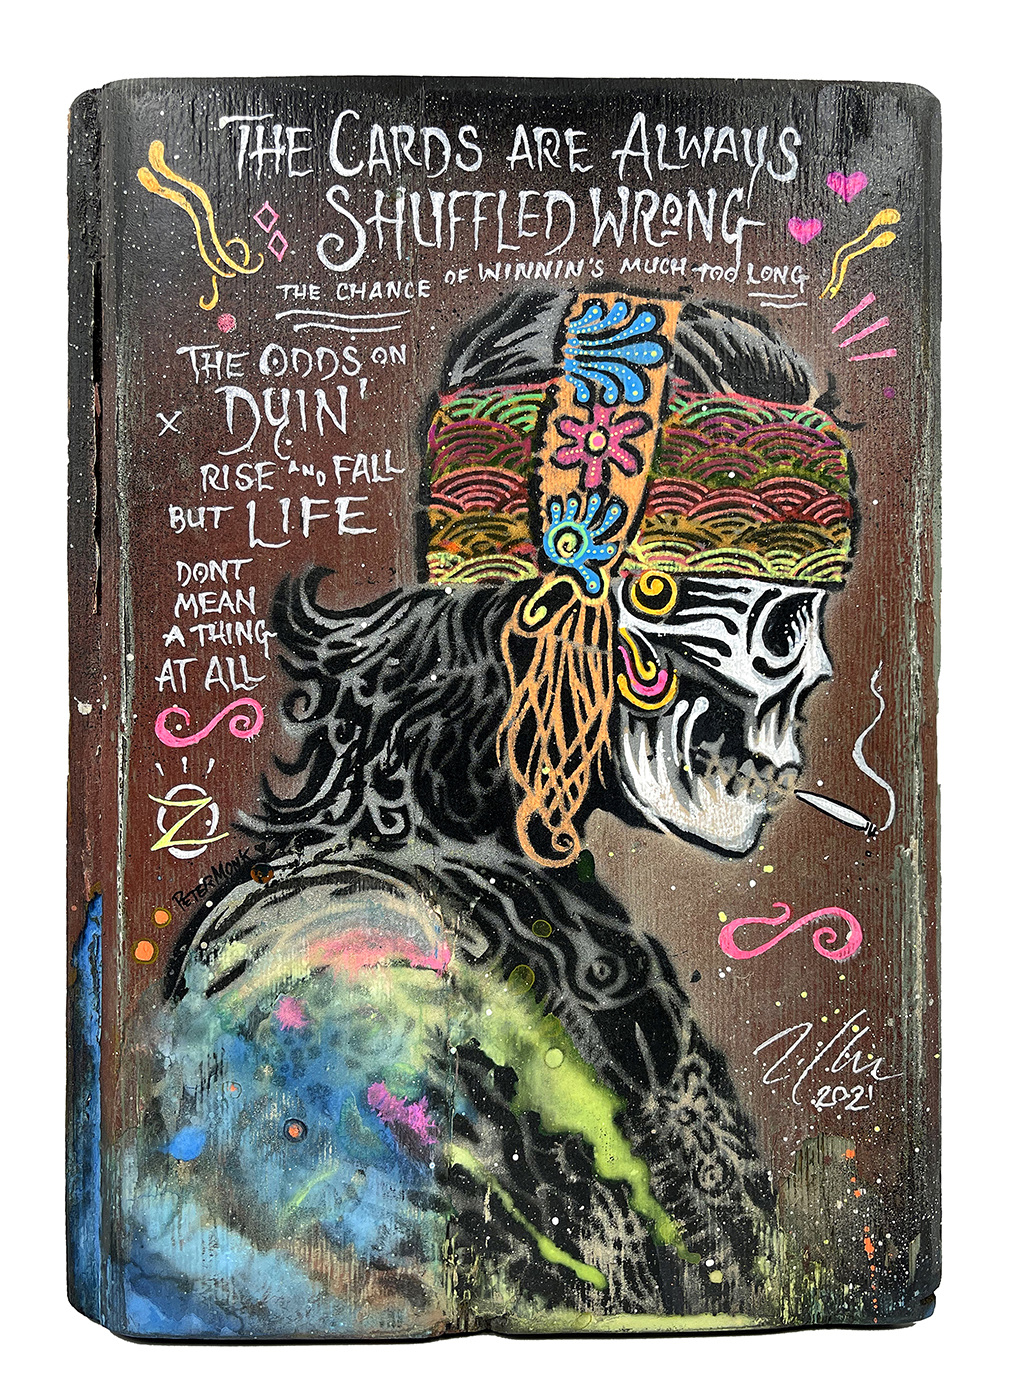 THE CARDS ARE ALWAYS
SHUFFLED WRONG
THE CHANCE OF WINNIN'S MUCH TOO LONG
THE ODDS ON
DYIN'
RISE AND FALL
BUT LIFE
DONT
MEAN
A THING
AT ALL
Z
PETER MONK
2021